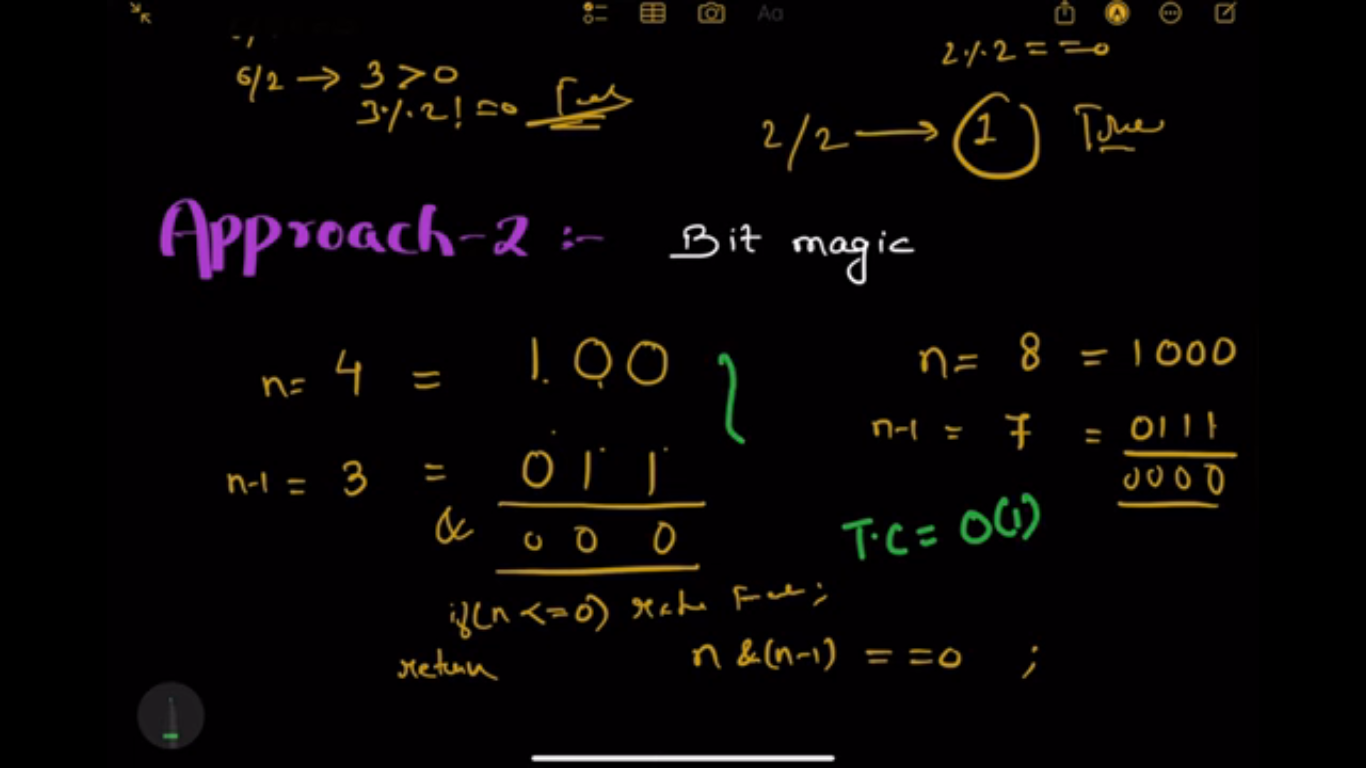 6/2 → 3 > 0
3 % 2 ! = 0
2 % 2 = = 0
2/2 → 1 True
Approach-2 :-
Bit magic
n = 4 = 100
n-1 = 3 = 011
& 000
n = 8 = 1000
n-1 = 7 = 0111
0000
T.C = O(1)
if(n <= 0)
return n &(n-1) = = 0 ;
Aa